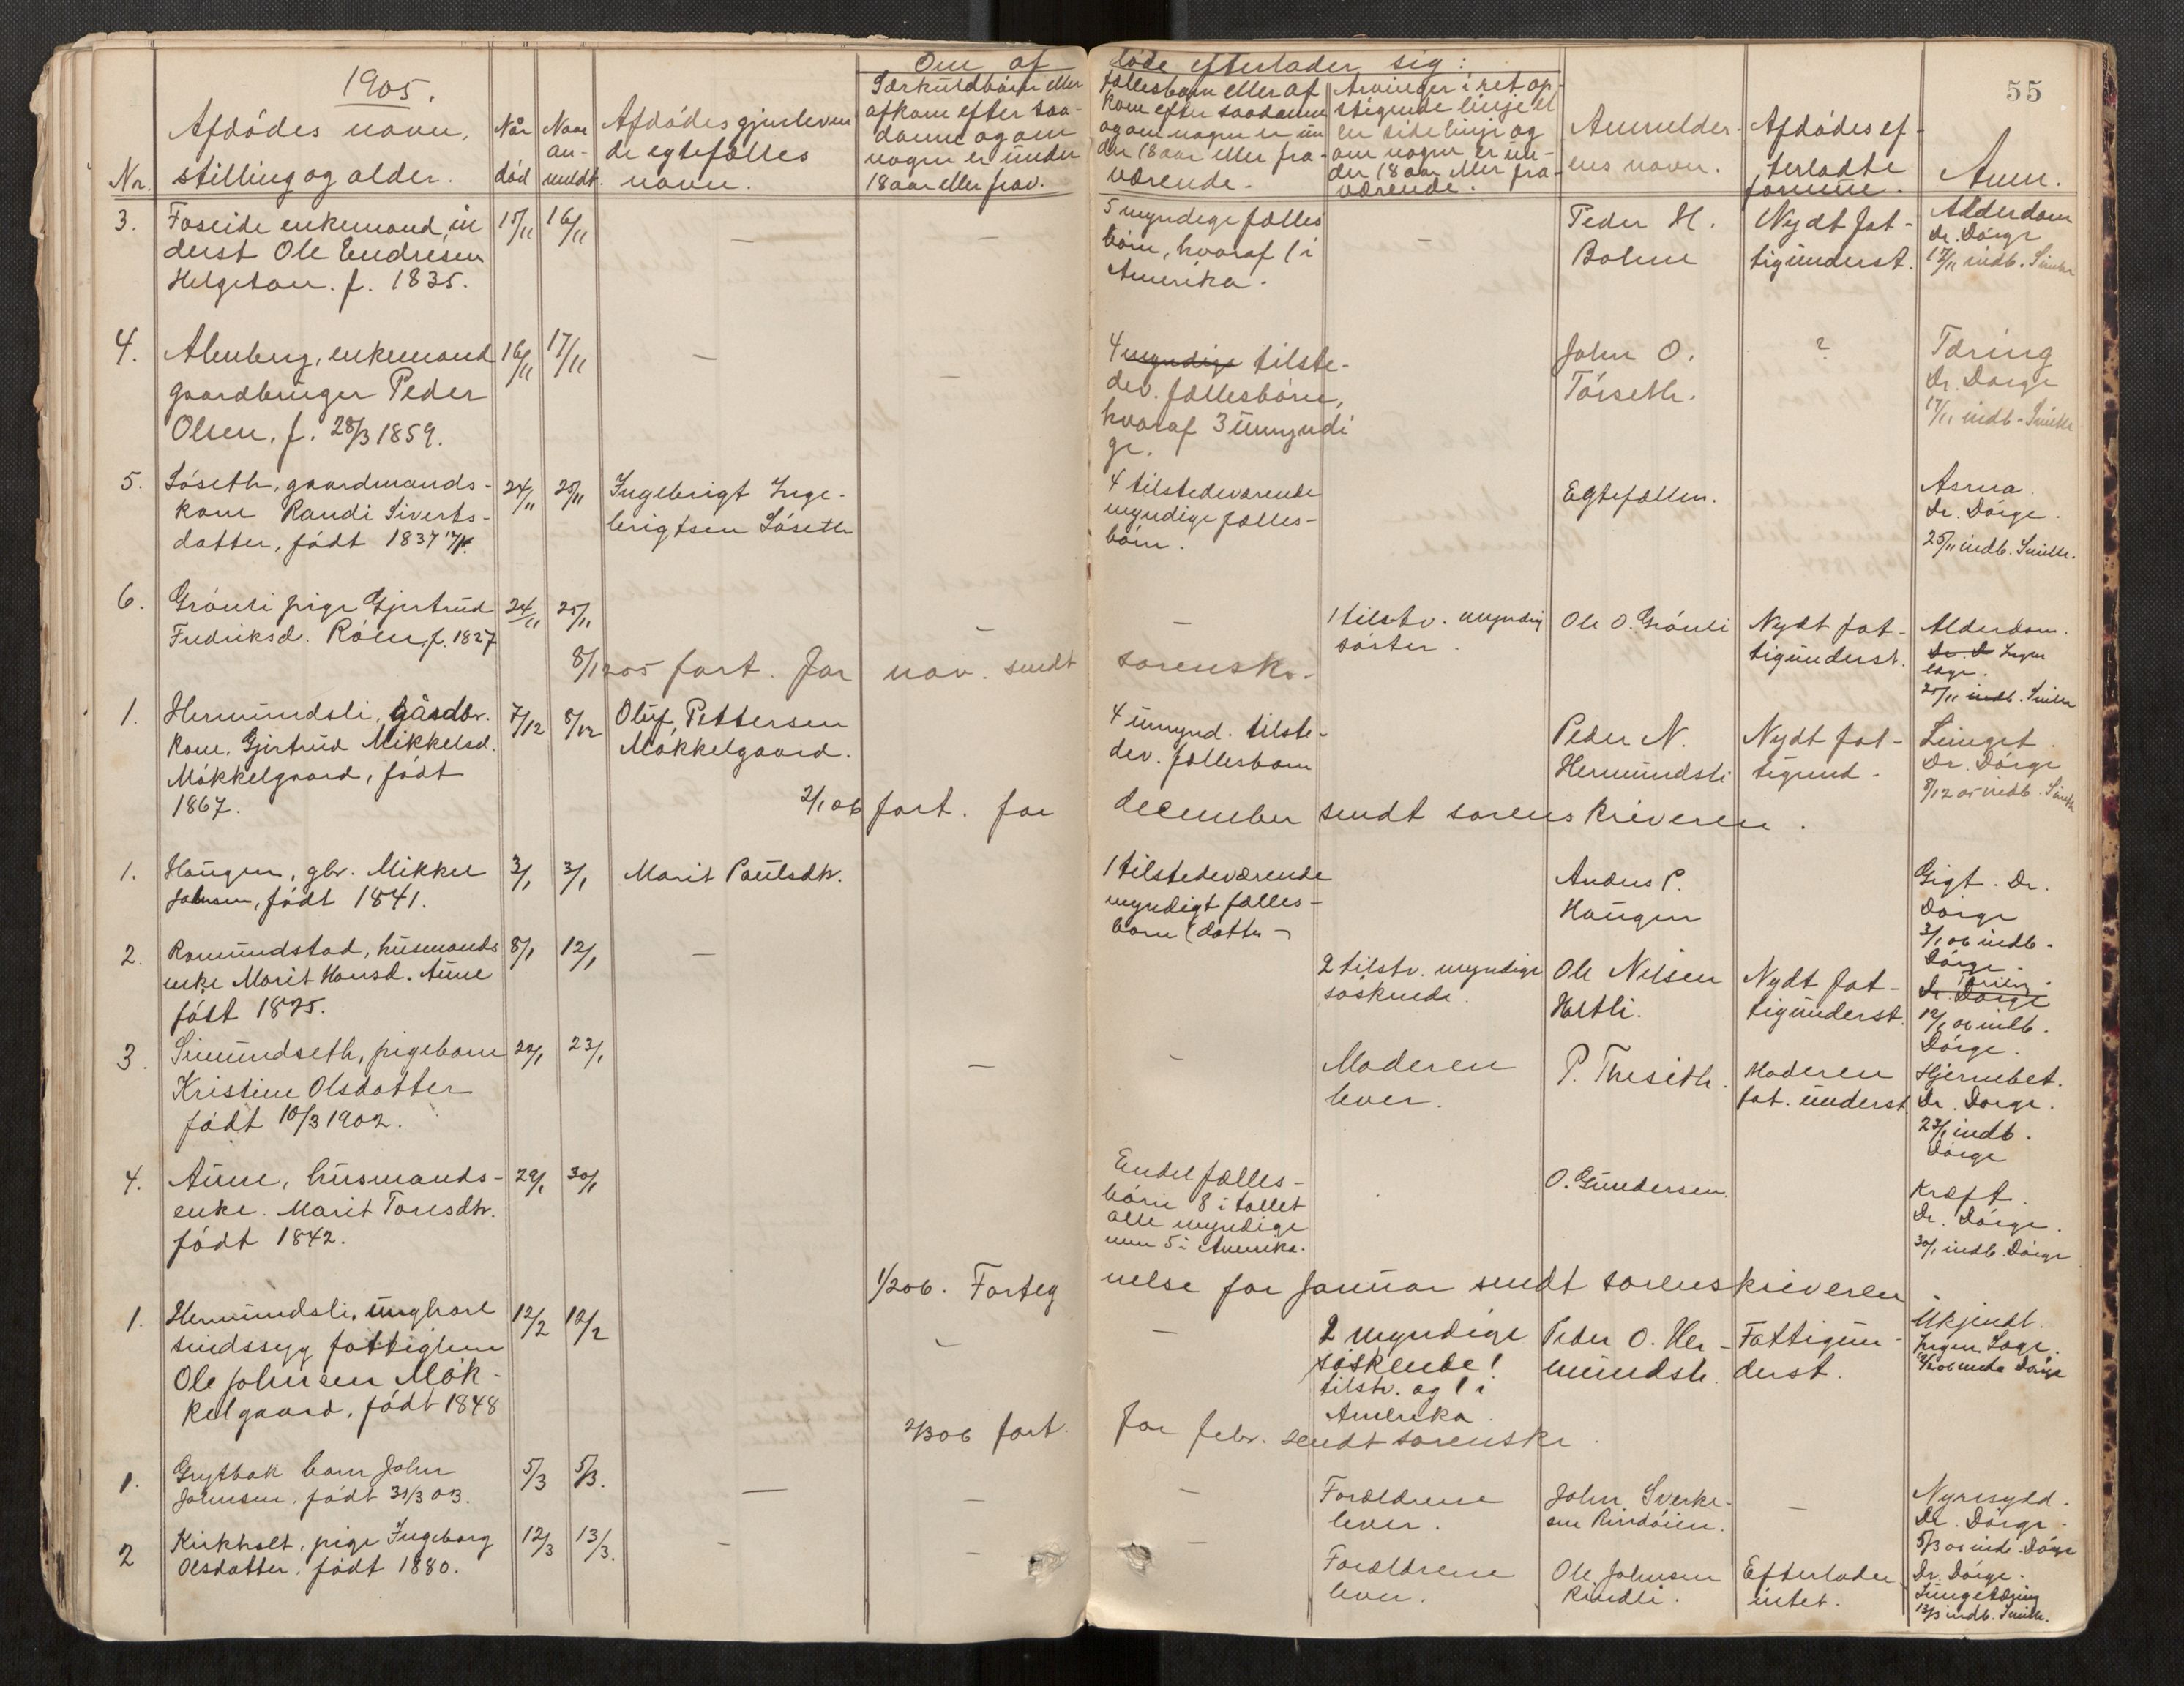 55
1905.
Om af døde efterlader sig:
Nr.
Afdødes navn,
stilling og alder.
Når
død
Naar
an-
meldt.
Afdødes gjenleven
de egtefælles
navn.
Særkuldbørn eller
afkom efter saa-
danne og om
nogen er under
18 aar eller frav.
Fællesbørn eller af
kom efter saadanne
og om nogen er un
der 18 aar eller fra-
værende.
Arvinger i ret op-
stigende linje el
ler sidelinje og
om nogen er un-
der 18 aar eller fra-
værende.
Anmelder-
ens navn.
Afdødes ef-
terladte
formue.
Anm.
3.
Foseide enkemand, in
derst Ole Endresen
Helgetun. f. 1835.
15/11
16/11
—
—
5 myndige fælles
børn, hvoraf 1 i
Amerika.
—
Peder H.
Bolme
Nydt fat-
tigunderst.
Alderdom
Dr. Dørge
17/11 indb. Smitte
4.
Almberg, enkemand
gaardbruger Peder
Olsen, f. 28/3 1859.
16/11
17/11
—
—
4 myndige tilste-
dev. fællesbørn,
hvoraf 3 umyndi
ge.
John O.
Tørseth.
?
Tæring
Dr. Dørge
17/11 indb. Smitte
5.
Løseth, gaardmands-
kone Randi Siverts-
datter, født 1837
24/11
25/11
Ingebrigt Inge-
brigtsen Løseth
4 tilstedeværende
myndige fælles-
børn.
Egtefællen.
Asma.
Dr. Dørge.
25/11 indb. Smitte.
6.
Grønli pige Gjertrud
Fredriksd. Røen, f. 1827
24/11
25/11
—
—
1 tilstv. myndig
søster.
Ole O. Grønli
Nydt fat-
tigunderst.
Alderdom.
Dr. D Ingen
læge.
25/11 indb. Smitte
8/12 05 fort. for nov. sendt sorensk.
1.
Hermundsli, gårdbr.
kone. Gjertrud Mikkelsd.
Møkkelgaard, født
1867.
7/12
8/12
Oluf Pettersen
Møkkelgaard.
4 umynd. tilste-
dev. fællesbarn
Peder N.
Hermundsli
Nydt fat-
tigund-
Lunget.
Dr. Dørge
8/12 05 indb. Smitte
2/1 06 fort. for december sendt sorenskriveren.
1.
Haugen, gbr. Mikkel
Johnsen, født 1841.
3/1
3/1
Marit Paulsdtr.
1 tilstedeværende
myndigt fælles-
barn (datter)
Anders P.
Haugen
Gigt. Dr.
Dørge
3/1 06 indb.
Dørge
2.
Romundstad, husmands
enke Marit Hansd. Aune
født 1825.
8/1
12/1
—
2 tilstv. myndige
søskende.
Ole Nilsen
Heltli.
Nydt fat-
tigunderst.
Dr. Dørge
12/1 06 indb.
Dørge.
3.
Simundseth, pigebarn
Kristine Olsdatter
født 10/3 1902.
22/1
23/1
—
—
Moderen
lever.
P. Theseth.
Moderen
fat. underst
Hjernebet.
Dr. Dørge.
23/1 indb.
Dørge
4.
Aune, husmands-
enke. Marit Toresdtr.
født 1842.
29/1
30/1
Endel fælles-
børn 8 i tallet
alle myndige
men 5 i Amerika.
O. Gundersen.
Kræft.
Dr. Dørge.
30/1 indb. Dørge
1/2 06. Forteg nelse for Januar sendt sorenskriveren
1.
Hermundsli, ungkarl
sindssyg fattiglem
Ole Johnsen Møk-
kelgaard, født 1848
12/2
12/2
—
—
2 myndige
søskende 1
tilstv. og 1 i
Amerika.
Peder O. Her-
mundsli.
Fattigun-
derst.
Ukjendt.
Ingen Læge.
12/2 06 Dørge
2/3 06 fort. for febr. sendt sorenskr.
1.
Grytbak barn John
Johnsen, født 31/3 03.
5/3
5/3.
—
—
—
Forældrene
lever.
John Sverke-
sen Rindøien.
—
Nyresygd.
Dr. Dørge.
5/3 06 indb. Dørge
2
Kirkholt, pige Ingeborg
Olsdatter, født 1880.
12/3
13/3.
—
—
—
Forældrene
lever.
Ole Johnsen
Rindli.
Efterlader
intet.
Dr. Dørge.
Lungetæring
13/3 indb. Smitte.